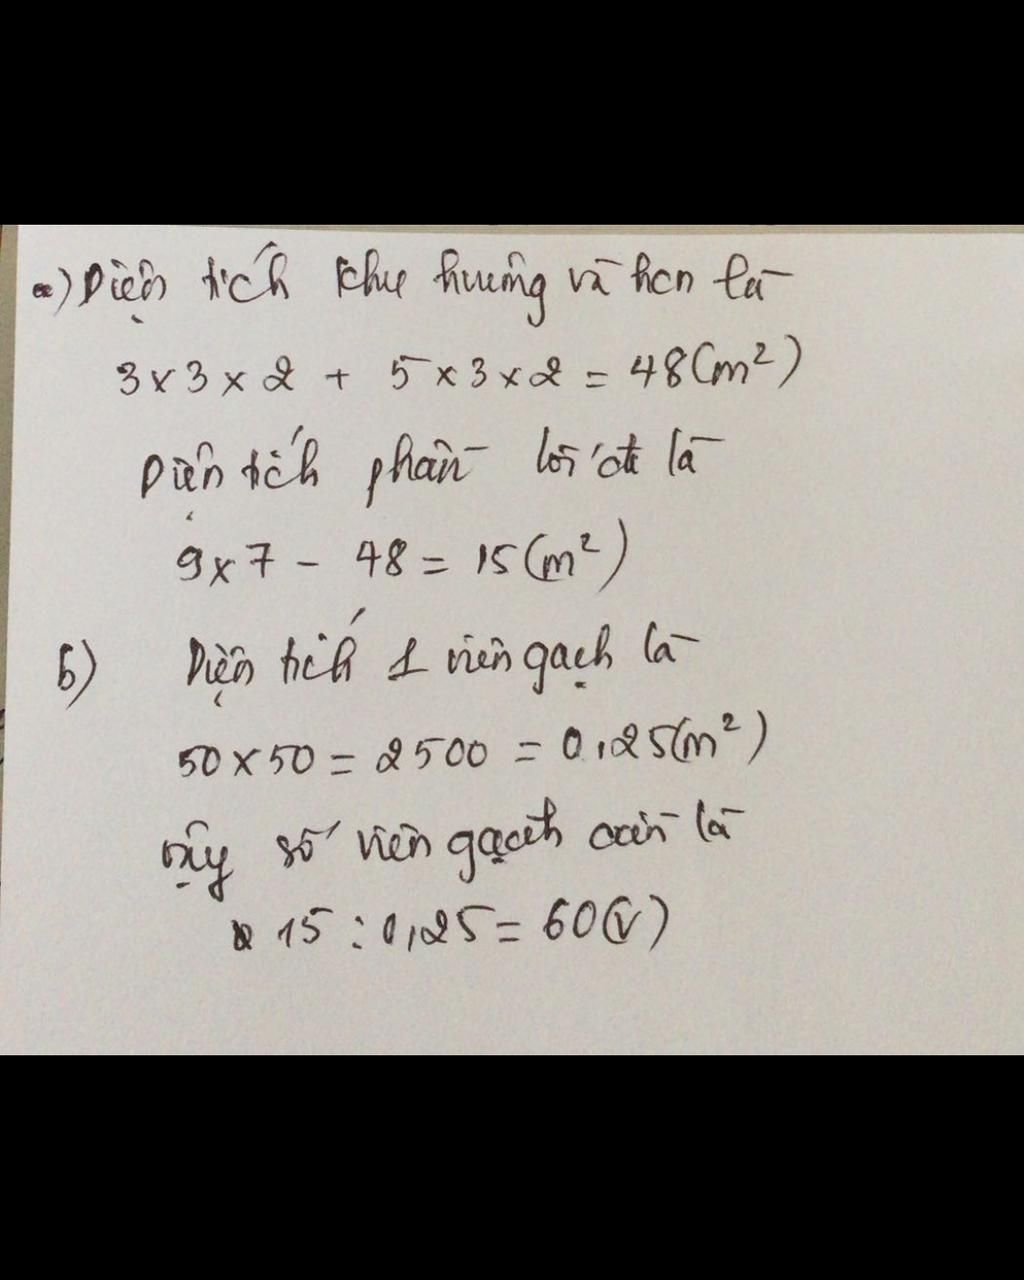 a) Diện tích khu hương và hcn là
3 x 3 x 2 + 5 x 3 x 2 = 48(m²)
Diện tích phần lối đi là
9 x 7 - 48 = 15(m²)
b) Diện tích 1 viên gạch là
50 x 50 = 2500 = 0,25(m²)
Vậy số viên gạch cần là
15 : 0,25 = 60(v)